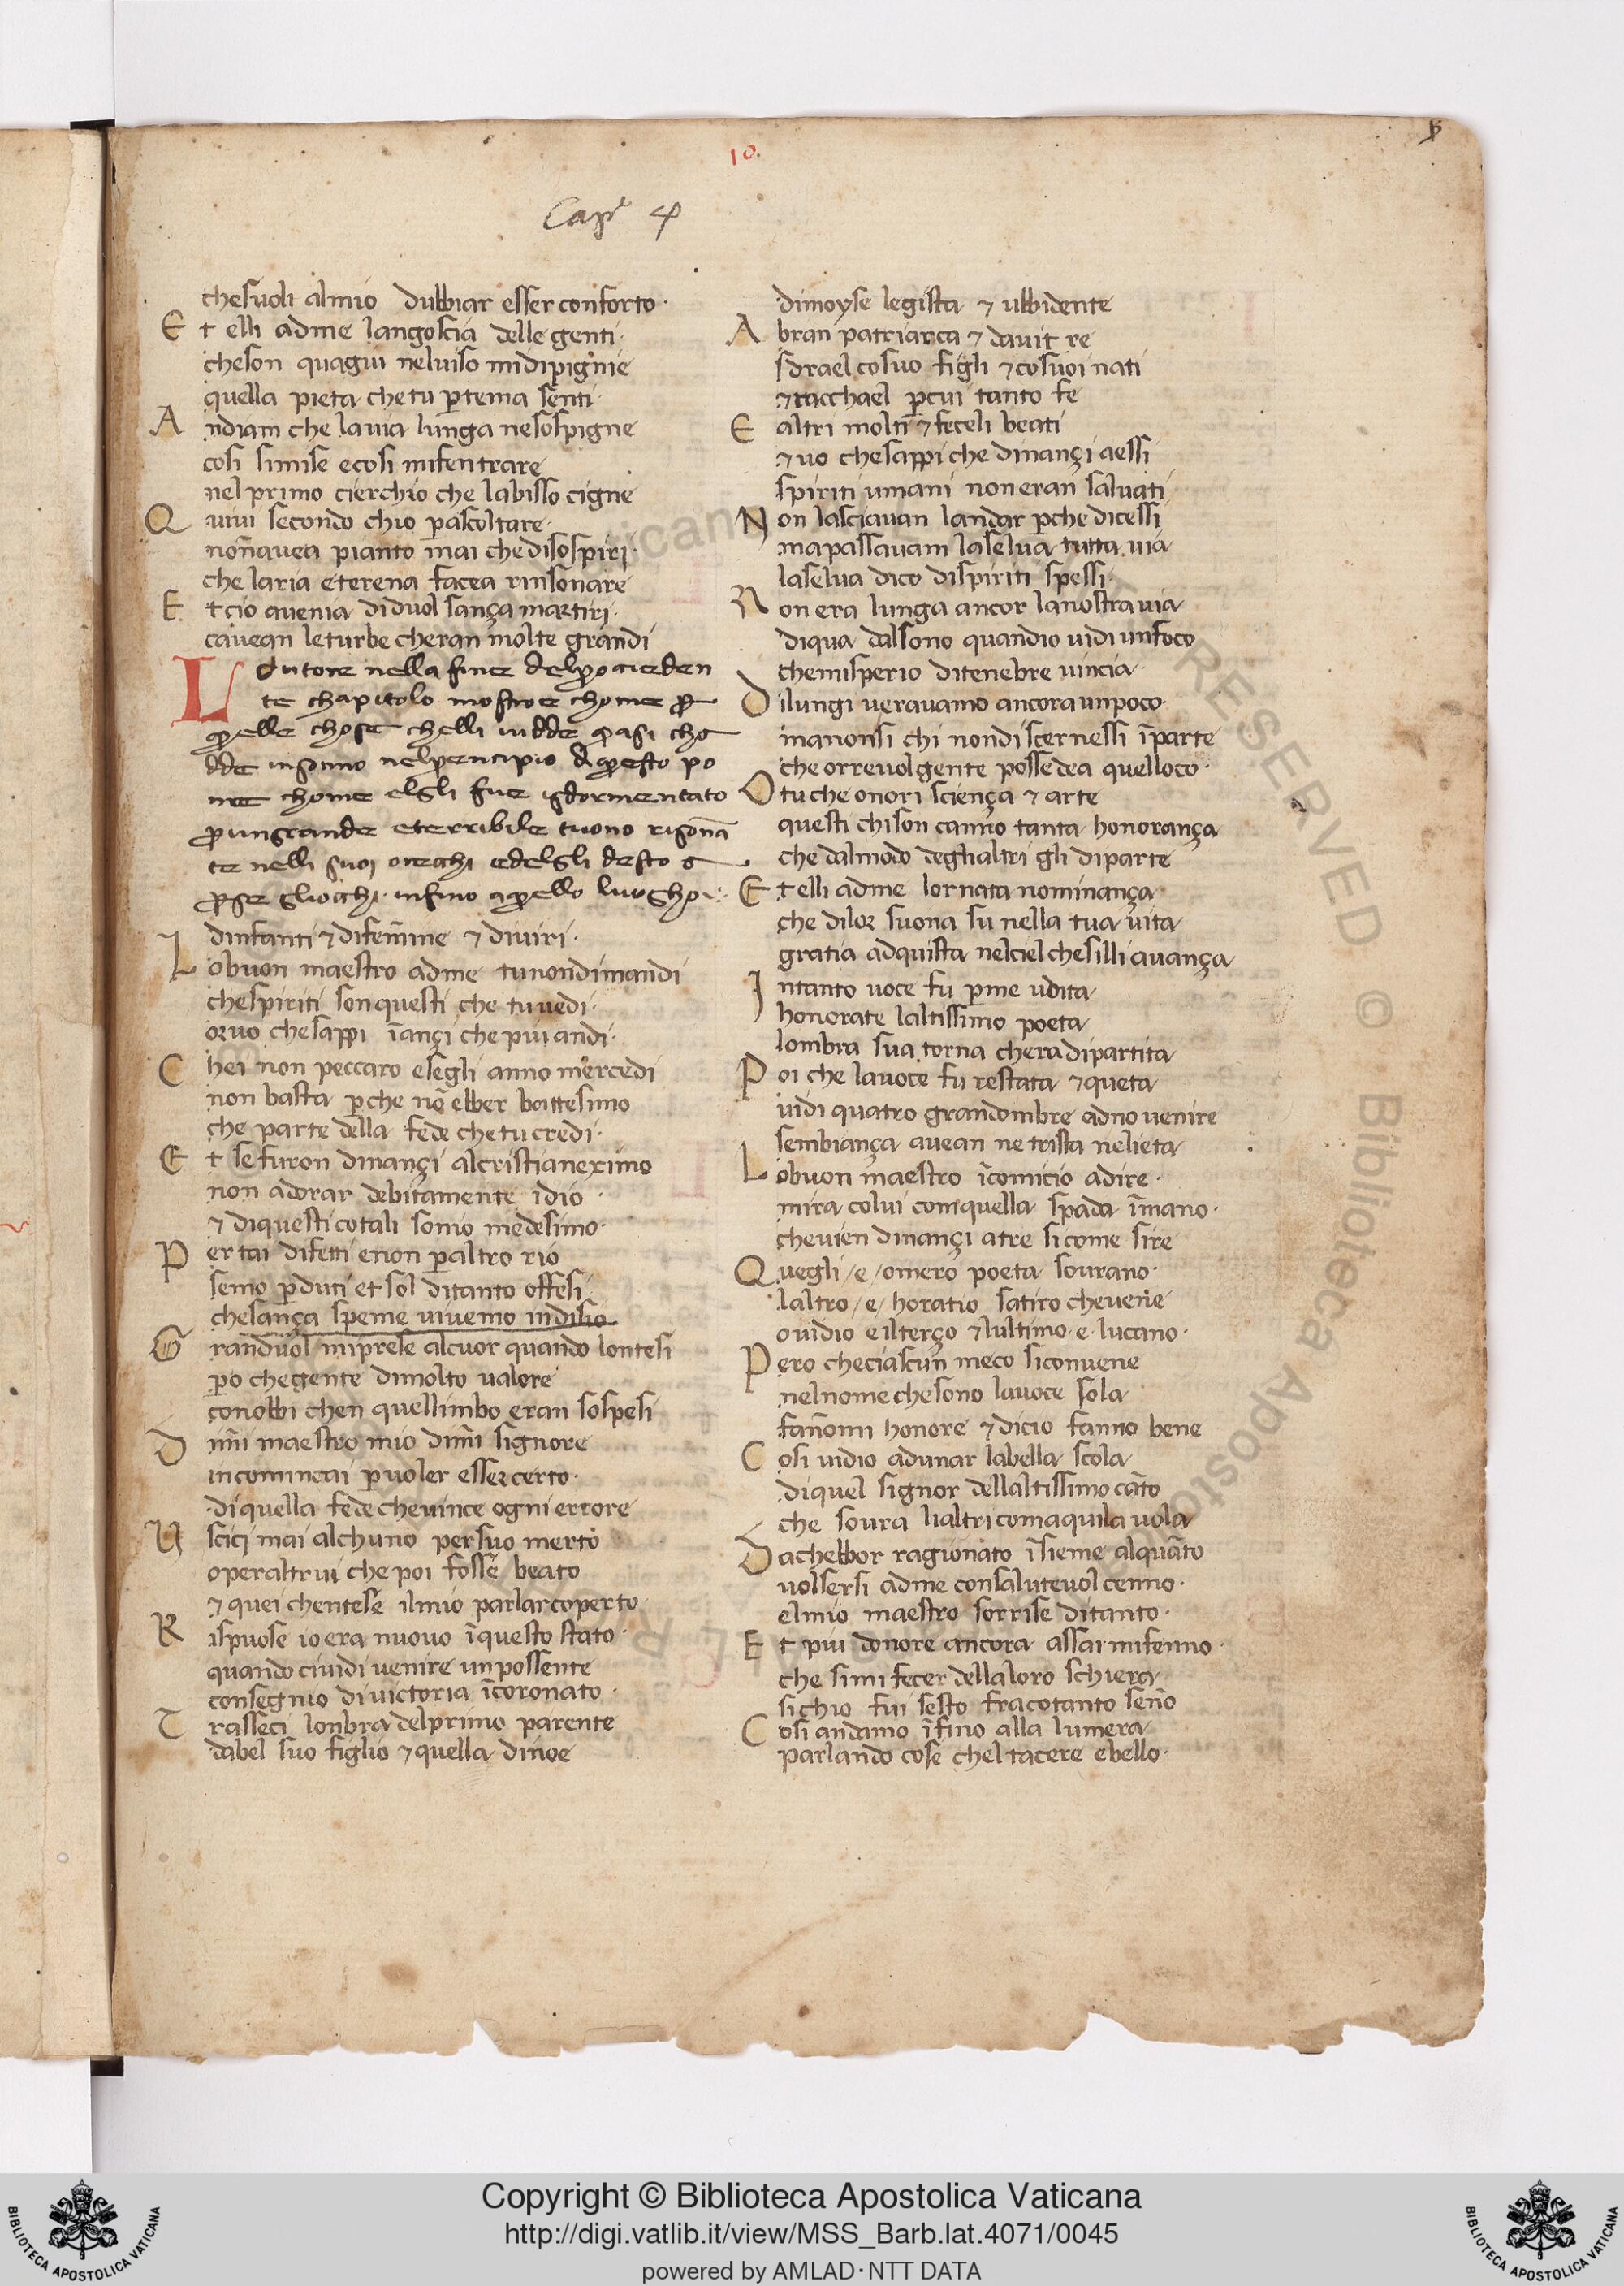 10.
Capº 4
chesuoli almio dubbiar esser conforto·
Et elli adme langoscia delle genti·
cheson quagiu neluiso midipignie
quella pieta chetu ꝑtema senti·
Andiam che lauia lunga nesospigne
cosi simise ecosi mifentrare
nel primo cierchio che labisso cigne
Quiui secondo chio ꝑascoltare·
non̄auea pianto mai che disospiri·
che laria eterena facea rinsonare
Et cio auenia diduol sança martiri·
cauean leturbe cheran molte grandi
Lautore nella fine delprocieden
te chapitolo mostroe chome ꝑ
quelle chose chelli uidde quasi cha
dde insonno nelprencipio diquesto po
ne chome elgli fue isdormentato
ꝑungrande eterribile tuono risonā
te nelli suoi orecchi edelgli desto a
ꝑse gliocchi· infino aquello luogho·
dinfanti ⁊ difem̄ine ⁊ diuiri·
Lobuon maestro adme tunondimandi
chespiriti son questi che tuuedi·
oruo chesappi īançi che piu andi·
Chei non peccaro esegli anno mercedi
non basta ꝑche nō ebber battesimo
che parte della fede chetucredi·
Et sefuron dinançi alcristianeximo
non adorar debitamente īdio·
⁊ diquesti cotali sonio medesimo·
Per tai difetti enon ꝑaltro rio
semo ꝑduti et sol ditanto offesi·
chesança speme uiuemo indisio
Granduol miprese alcuor quando lontesi
ꝑo chegente dimolto ualore
conobbi chen quellimbo eran sospesi
Dim̄i maestro mio dim̄i signore
incomincai ꝑuoler esser certo·
di quella fede cheuince ogni errore
Uscici mai alchuno persuo merto
operaltrui che poi fosse beato
⁊ quei chentese ilmio parlar coperto
Rispuose io era nuouo īquesto stato·
quando ciuidi uenire unpossente
consegnio diuictoria īcoronato·
Trasseci lonbra delprimo parente
dabel suo figlio ⁊ quella dinoe
dimoyse legista ⁊ ubbidente
Abran patriarca ⁊ dauit re
sdrael cosuo figli ⁊ cosuoi nati
⁊ racchael ꝑcui tanto fe
E altri molti ⁊ feceli beati
⁊ uo chesappi che dinançi aessi
spiriti umani non eran saluati
Non lasciauan landar ꝑche dicessi
mapassauam laselua tutta uia
laselua dico dispiriti spessi·
Non era lunga ancor lanostra uia
diqua dalsono quandio uidi unfoco
chemisperio ditenebre uincia
Dilungi uerauamo ancora unpoco·
manonsi chi nondiscernessi īparte
che orreuol gente possedea quelloco·
O tu che onori sciença ⁊ arte
questi chison canno tanta honorança
che dalmodo deglialtri gli diparte
Et elli adme lornata nominança
che dilor suona su nella tua uita
gratia adquista nelciel chesilli auança
Intanto uoce fu ꝑme udita
honorate laltissimo poeta
lombra sua torna chera dipartita
Poi che lauoce fu restata ⁊ queta
uidi quatro grandombre adno uenire
sembiança auean ne trista nelieta
Lobuon maestro īcomicio adire·
mira colui comquella spada īmano·
cheuien dinançi atre si come sire
Quegli /e/ omero poeta sourano·
laltro /e/ horatio satiro cheuene
ouidio e ilterço ⁊ lultimo·e·lucano·
Pero checiascun meco siconuene
nelnome chesono lauoce sola
fan̄omi honore ⁊ dicio fanno bene
Cosi uidio adunar labella scola
diquel signor dellaltissimo cāto
che soura lialtri comaquila uola
Dachebbor ragionato īsieme alquāto
uolsersi adme consaluteuol cenno·
elmio maestro sorrise ditanto·
Et piu donore ancora assai mifenno·
che simi fecer dellaloro schiera
sichio fui sesto fracotanto sen̄o
Cosi andamo īfino alla lumera
parlando cose chel tacere ebello·
Copyright © Biblioteca Apostolica Vaticana
http://digi.vatlib.it/view/MSS_Barb.lat.4071/0045
powered by AMLAD·NTT DATA